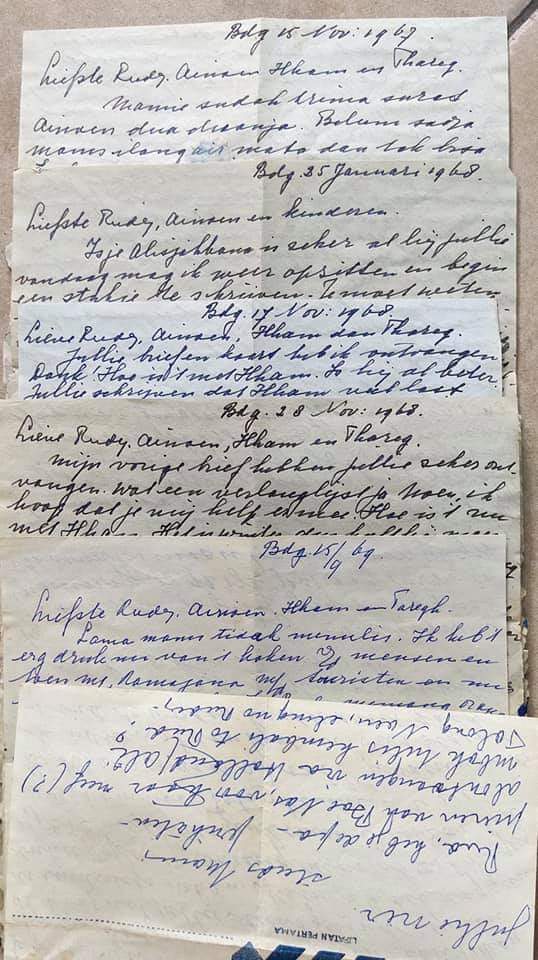 Bdg 15 Nov: 1967.
Liefste Rudy. Ainoen Ilham en Thareq.
Mamie sudah trima surat
Ainoen dua duanja. Belum sadja
mams ilang air mata dan tak bisa
Bdg. 25 Januari 1968.
Liefste Rudy, Ainoen en kinderen.
Isje Alisjahbana is zeker al bij jullie
vandaag mag ik weer opzitten en begin
een stukje te schrijven. Je moet weten
Bdg. 17 Nov: 1968.
Lieve Rudy, Ainoen, Ilham dan Thareq.
Jullie brief en kaart heb ik ontvangen
Dank! Hoe is 't met Ilham. Is hij al beter.
Jullie schrijven dat Ilham veel last
Bdg. 28 Nov: 1968.
Lieve Rudy. Ainoen, Ilham en Thareq.
Mijn vorige brief hebben jullie zeker ont
vangen. Wat een verlanglijst ja Noen, ik
hoop dat je mij helpt ermee. Hoe is 't nu
met Ilham.
Bdg. 15/9 69
Liefste Rudy. Ainoen. Ilham en Taregh.
Lama mams tidak menulis. Ik heb 't
erg druk nu van 't koken mensen en
toen mt. Ramajana touristen en
LIPATAN PERTAMA
Jullie nier.
Steeds Mams,
prihatin -
Rud, heb je de pa-
pieren van Boe Nas, voor haar neef (?)
al ontvangen via Holland
mbok tulis kembali to Rud.?
Tolong Noen, elingno Rudy,